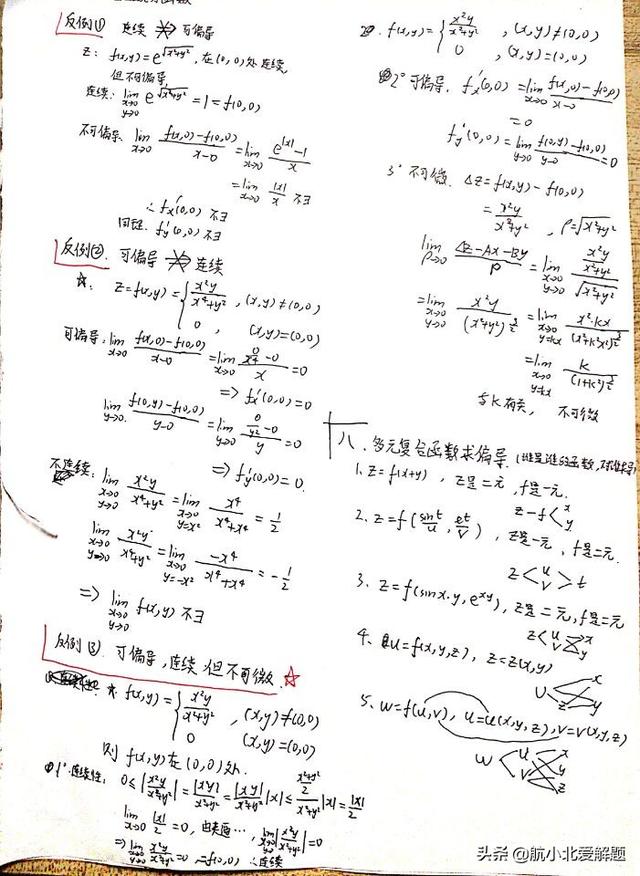 反例(1) 连续 ⇏ 可偏导
Z: f(x,y)=e^{√(x²+y²)}, 在(0,0)处连续,
但不可偏导
连续: lim_{x→0,y→0} e^{√(x²+y²)} = 1 = f(0,0)
不可偏导: lim_{x→0} (f(x,0)-f(0,0))/(x-0) = lim_{x→0} (e^{|x|}-1)/x
= lim_{x→0} |x|/x 不∃
∴ f'x(0,0) 不∃
同理. f'y(0,0) 不∃
反例(2). 可偏导 ⇏ 连续
☆: Z=f(x,y)={ x²y/(x⁴+y²), (x,y)≠(0,0)
0, (x,y)=(0,0)
可偏导: lim_{x→0} (f(x,0)-f(0,0))/(x-0) = lim_{x→0} (0/x⁴-0)/x = 0
⇒ f'x(0,0)=0
lim_{y→0} (f(0,y)-f(0,0))/(y-0) = lim_{y→0} (0/y²-0)/y = 0
⇒ f'y(0,0)=0.
不连续: lim_{x→0,y→0} x²y/(x⁴+y²) = lim_{x→0,y=x²} x⁴/(x⁴+x⁴) = 1/2
lim_{x→0,y→0} x²y/(x⁴+y²) = lim_{x→0,y=-x²} -x⁴/(x⁴+x⁴) = -1/2
⇒ lim_{x→0,y→0} f(x,y) 不∃
反例(3). 可偏导, 连续 但不可微. ☆
f(x,y)={ x²y/(x²+y²), (x,y)≠(0,0)
0 (x,y)=(0,0)
则 f(x,y)在(0,0)处.
1° 连续性: 0≤|x²y/(x²+y²)| = |x²y|/(x²+y²) = |xy|/(x²+y²)|x| ≤ ((x²+y²)/2)/(x²+y²)|x| = |x|/2
lim_{x→0} |x|/2 = 0, 由夹逼…, lim_{x→0,y→0} |x²y/(x²+y²)| = 0
⇒ lim_{x→0,y→0} x²y/(x²+y²) = 0 = f(0,0) ∴连续
f(x,y)={ x²y/(x²+y²), (x,y)≠(0,0)
0, (x,y)=(0,0)
2° 可偏导. f'x(0,0) = lim_{x→0} (f(x,0)-f(0,0))/(x-0)
=0
f'y(0,0) = lim_{y→0} (f(0,y)-f(0,0))/(y-0) = 0
3° 不可微. ΔZ=f(x,y)-f(0,0)
= x²y/(x²+y²), ρ=√(x²+y²)
lim_{ρ→0} (ΔZ-Ax-By)/ρ = lim_{x→0,y→0} (x²y/(x²+y²))/√(x²+y²)
= lim_{x→0,y→0} x²y/(x²+y²)^{3/2} = lim_{x→0,y=kx} x²·kx/(x²+k²x²)^{3/2}
= lim_{x→0,y=kx} k/(1+k²)^{3/2}
与k有关, 不可微
十八、多元复合函数求偏导. (谁是谁的函数, 对谁求导)
1. Z=f(x+y), Z是二元, f是一元.
Z-f< x y
2. Z=f(sint/u, e^t/v), Z是一元, f是二元.
Z< u v >t
3. Z=f(sinx·y, e^{xy}), Z是二元, f是二元
Z< u v x y
4. u=f(x,y,z), Z=Z(x,y)
U x y z
5. W=f(u,v), u=u(x,y,z), v=v(x,y,z)
W< u v x y z
头条 @航小北爱解题